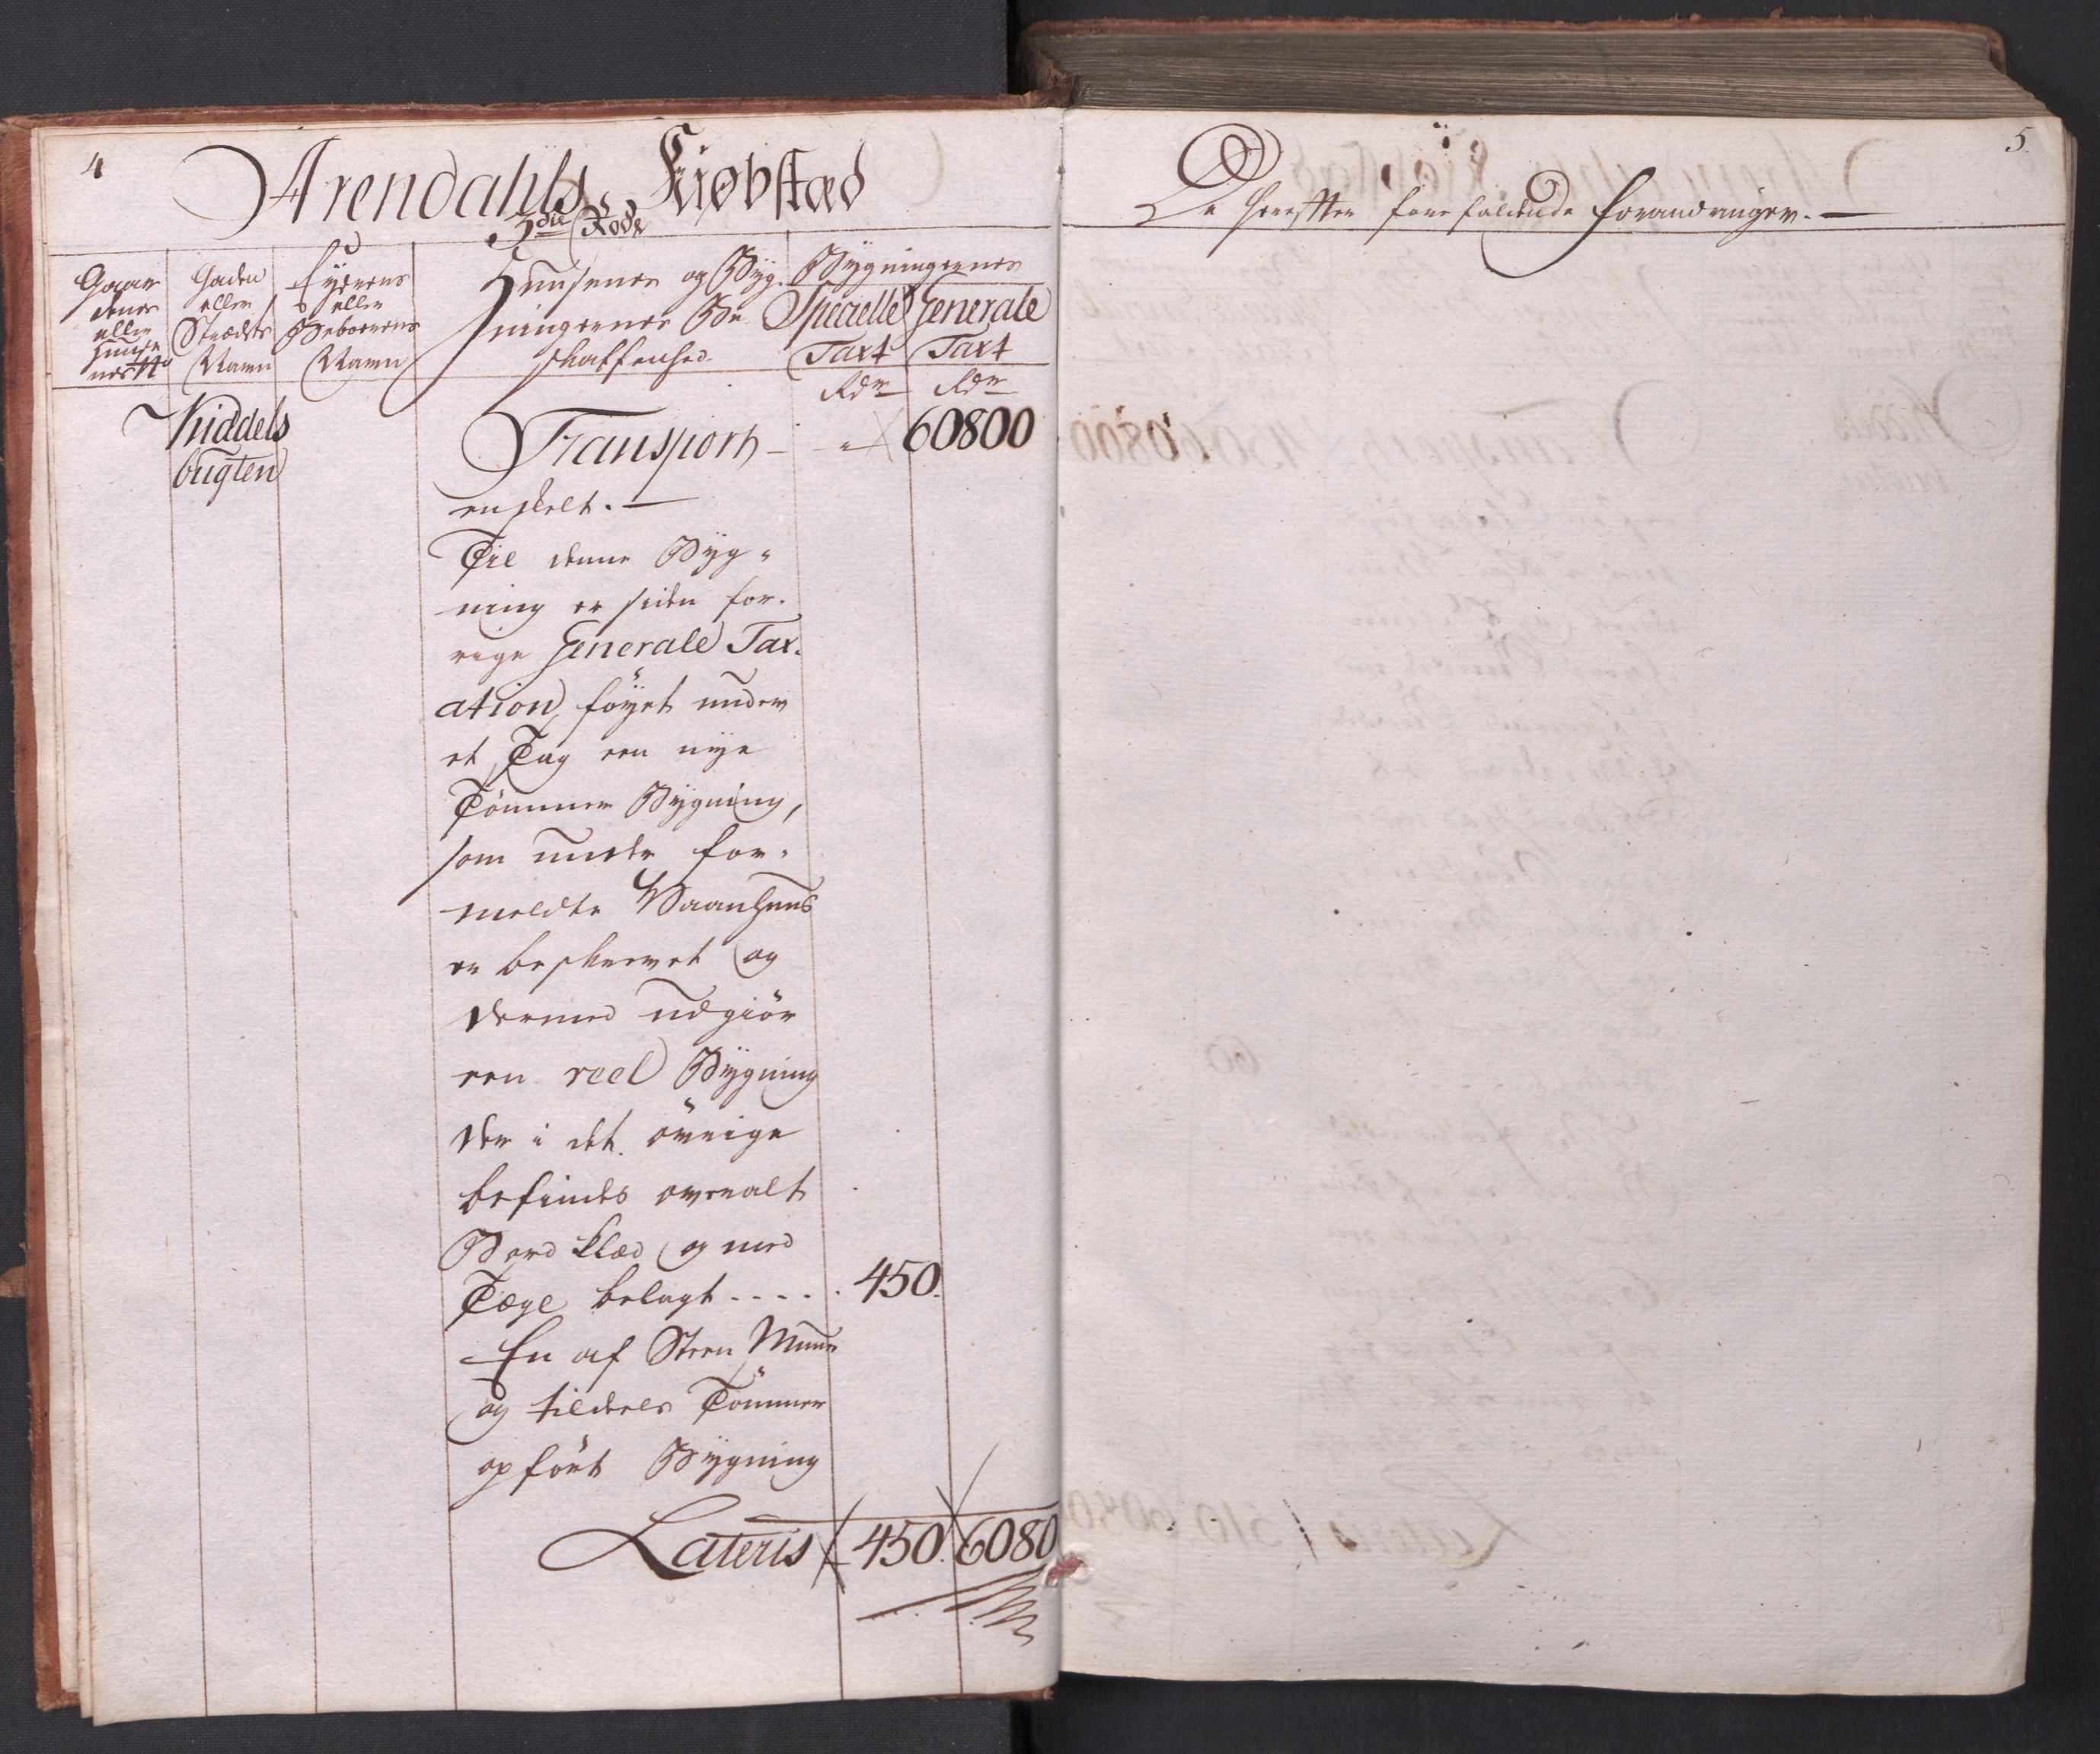 4
Arendahls Kiøbstæd
3die Rode
Gaar
denes
eller
Huuse
nes No
Gadens
eller
Strædets
Navn
Eyernes
eller
Beboernes
Navn
Huusenes og Byg
ningernes Be
skaffenhed
Bygningernes
Specielle Generale
Taxt Taxt
Rdr Rdr
Kiddels
bugten
Transport - - " 60800
enskelt. —
Til denne Byg"
ning er siden for.
rige Generale Tax.
ation, föyet under
et Tag een nye
Tömmer Bygning,
som under for"
meldte Vaanhuus
er beskrevet og
dermed udgiör
een reel Bygning
der i det övrige
befindes overalt
Bord klæd og med
Tægl belagt - - - - . 450.
En af Steen Muur
og tildeels Tömmer
opfört Bygning
Lateris 450. 6080
5.
De herefter forefaldende Forandringer. —